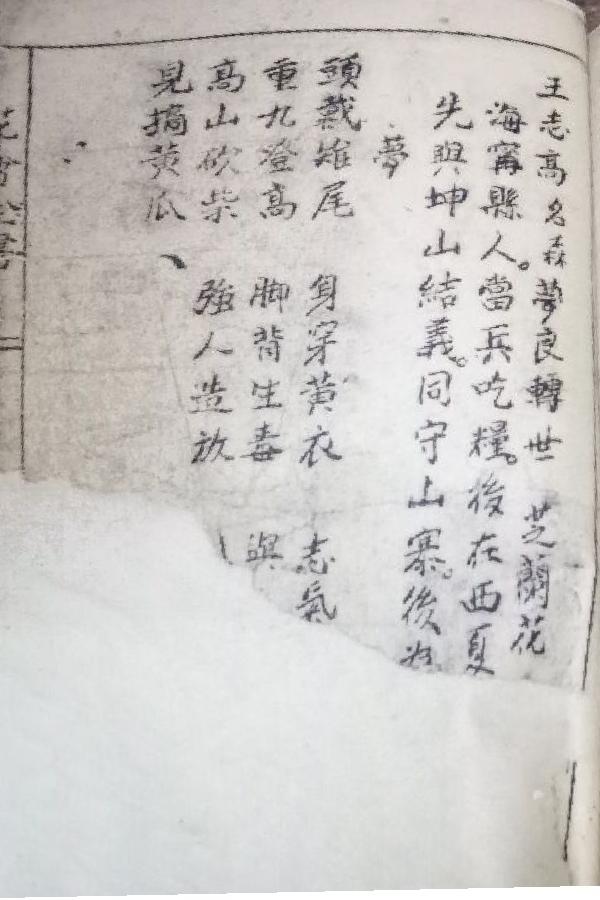 王志高名森夢良轉世 芝蘭花
海甯縣人。當兵吃糧。後在西夏
先與坤山結義。同守山寨。後
夢
頭戴雉尾 身穿黃衣 志氣
重九澄高 脚背生毒 與
高山砍柴 強人造放
見摘黃瓜
花會全書